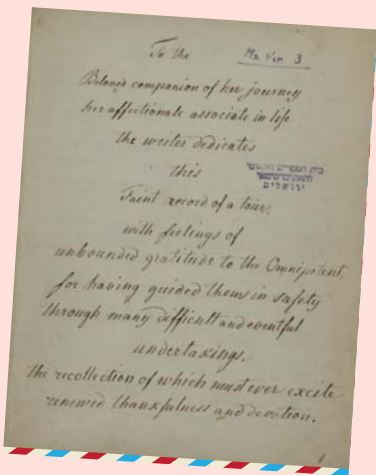 To the
Ms. Var 3
Beloved companion of her journey
her affectionate associate in life
the writer dedicates
this
בית הספרים הלאומי
והאוניברסיטאי
ירושלים
Faint record of a tour,
with feelings of
unbounded gratitude to the Omnipotent,
for having guided them in safety
through many difficult and eventful
undertakings.
the recollection of which must ever excite
renewed thankfulness and devotion.